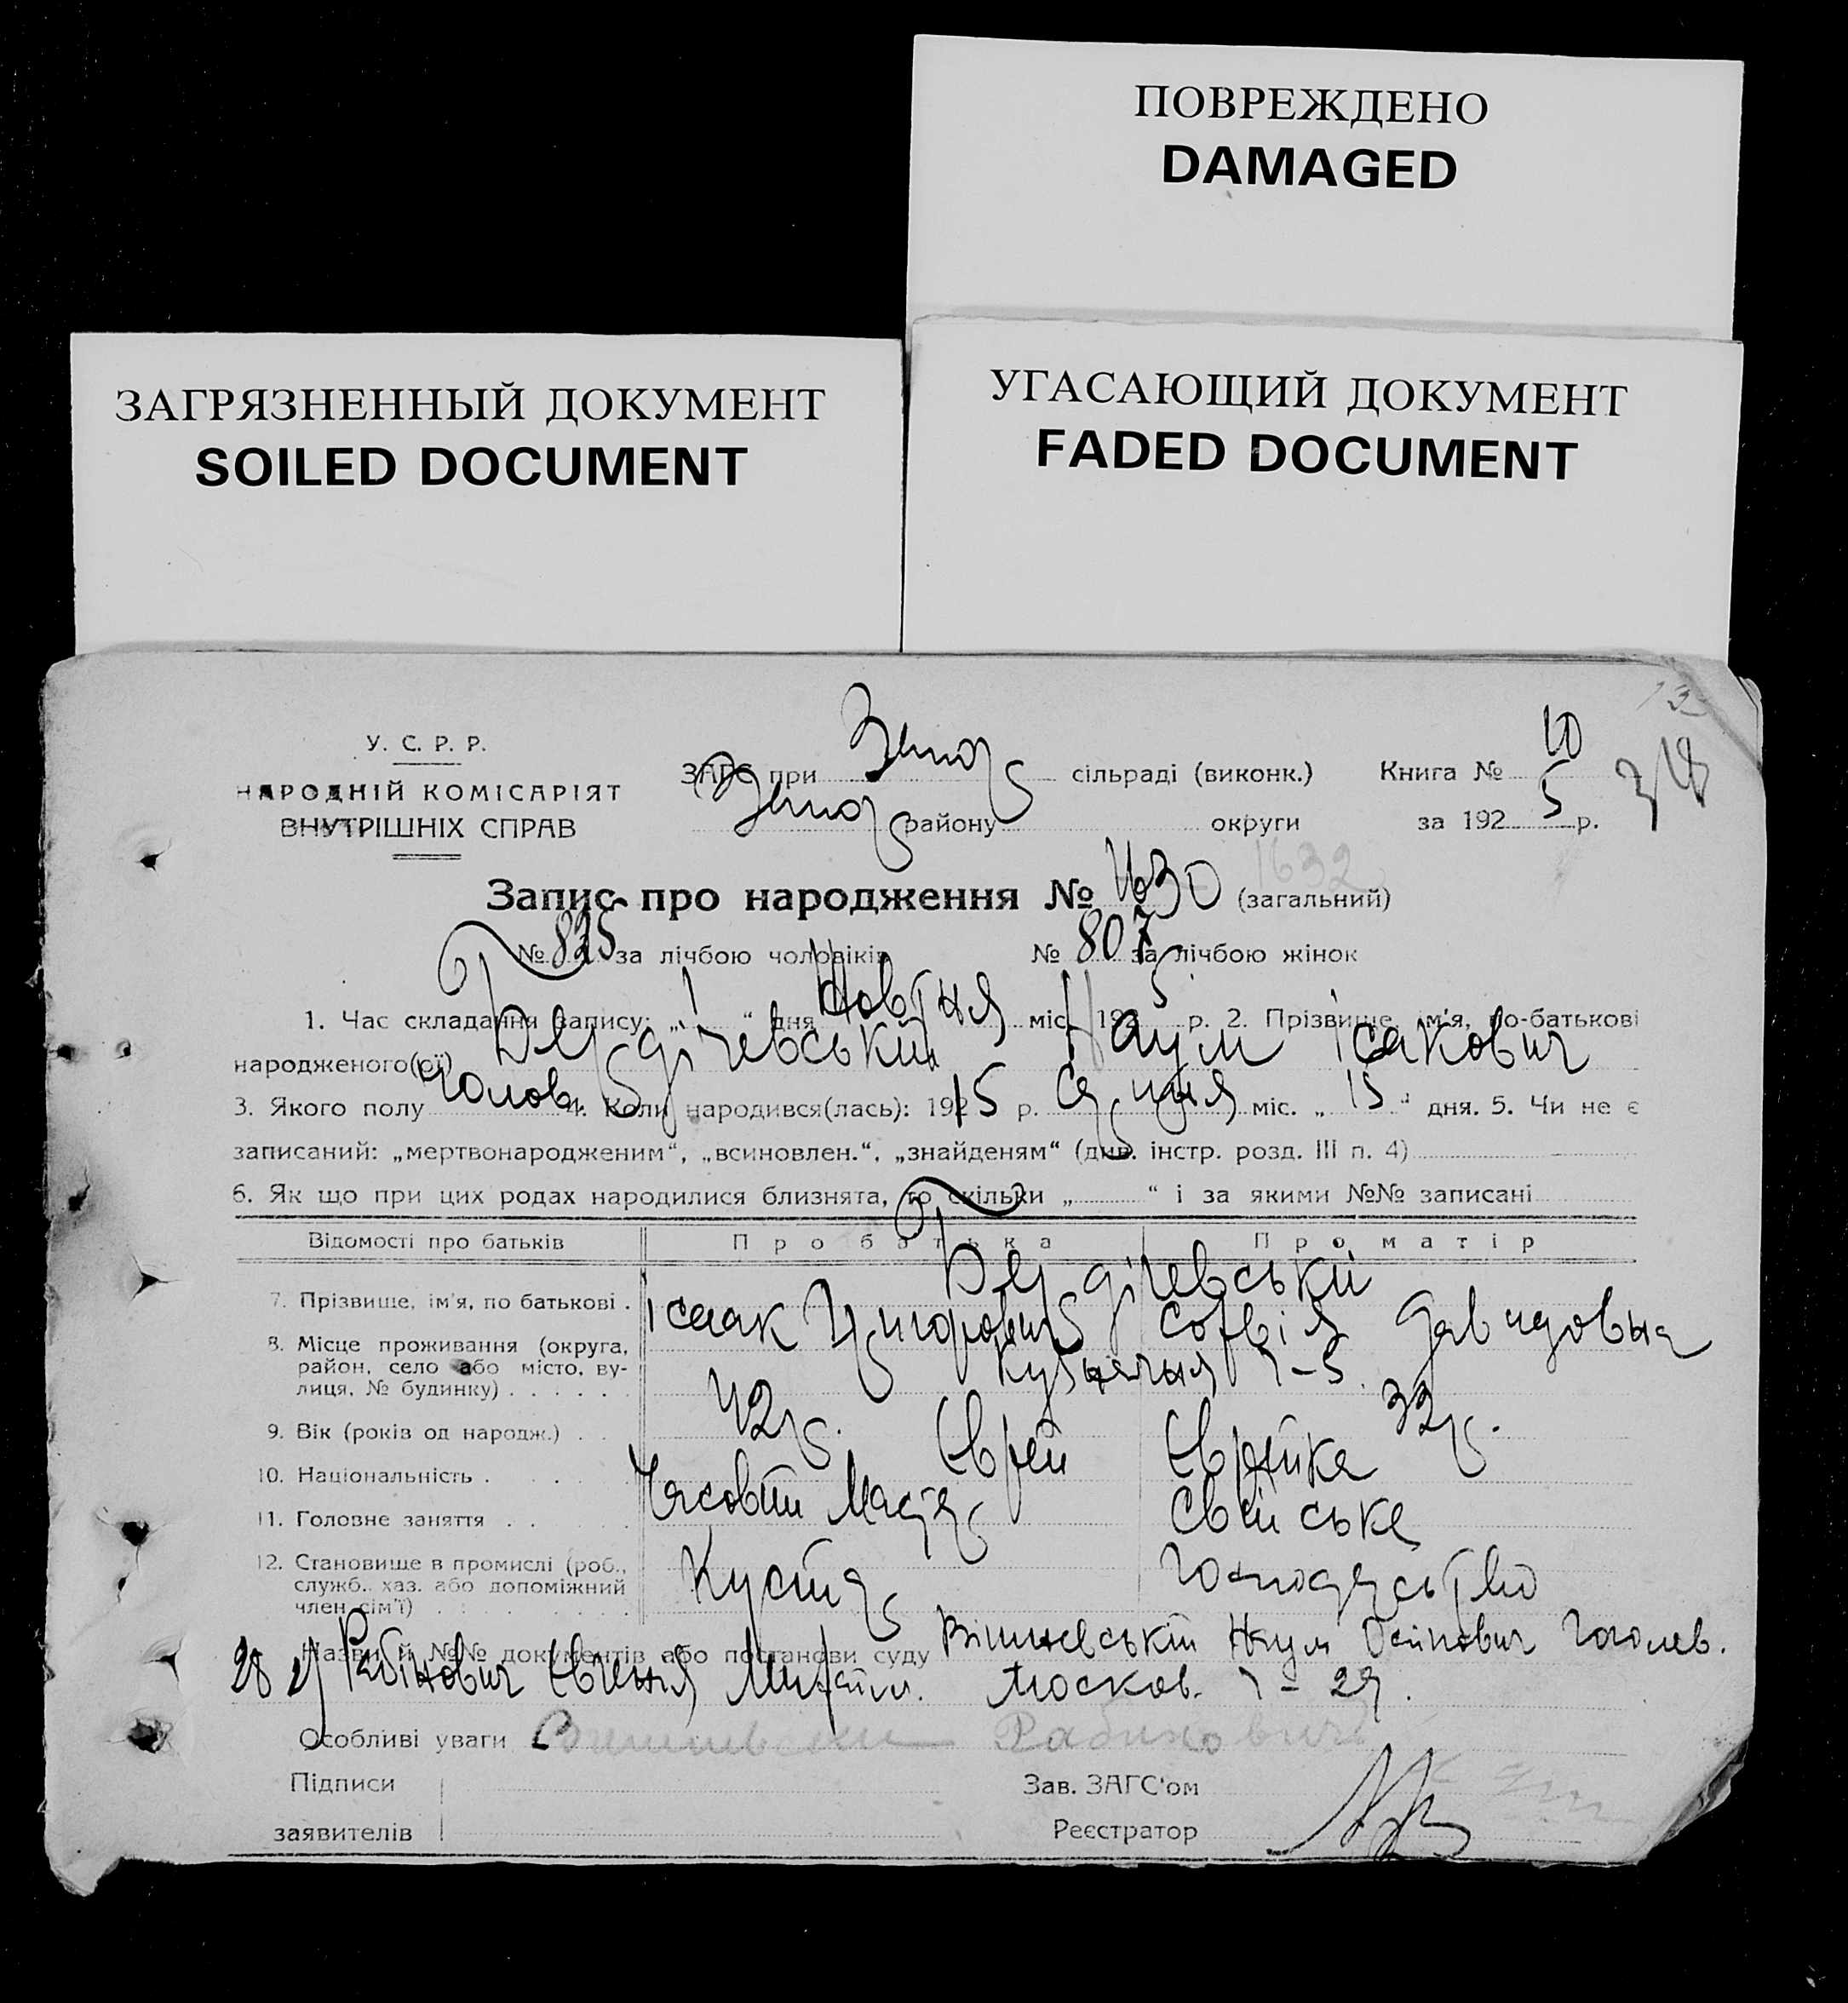 ПОВРЕЖДЕНО
DAMAGED
ЗАГРЯЗНЕННЫЙ ДОКУМЕНТ
SOILED DOCUMENT
УГАСАЮЩИЙ ДОКУМЕНТ
FADED DOCUMENT
13
У. С. Р. Р.
НАРОДНІЙ КОМІСАРІЯТ
ВНУТРІШНІХ СПРАВ
ЗАГС при Запор сільраді (виконк.) Книга № 10
Запор району округи за 1925 р.
318
Запис про народження № 1630 (загальний) 1632
№ 825 за лічбою чоловіків № 807 за лічбою жінок
1. Час складання запису: „1“ дня Жовтня міс. 1925 р. 2. Прізвище, ім'я, по-батькові
народженого(ої) Бердічевський Наум Ісакович
3. Якого полу Чолов. 4. Коли народився(лась): 1915 р. Серпня міс. „15“ дня. 5. Чи не є
записаний: „мертвонародженим“, „всиновлен.“, „знайденям“ (див. інстр. розд. III п. 4)
6. Як що при цих родах народилися близнята, то скільки „ “ і за якими №№ записані
Відомості про батьків Про батька Про матір
Бердічевський
7. Прізвище, ім'я, по батькові . Ісаак Григорович Софія Давидовна
8. Місце проживання (округа,
район, село або місто, ву-
лиця, № будинку) . . . . . . Кузнечная 7-5.
9. Вік (років од народж.) . . 42р. 32р.
10. Національність . Еврей Еврейка
11. Головне заняття . . Часовий Мастер Свійське
12. Становище в промислі (роб.,
служб. хаз. або допоміжний
член сім'ї) Кустар Господарство
Назви й №№ документів або постанови суду Вишневський Наум Осипович Гоголев.
28 Рабінович Евгенія Михайл. Москов. 7-29.
Особливі уваги Рабинович
Підписи Зав. ЗАГС'ом
заявителів Реєстратор